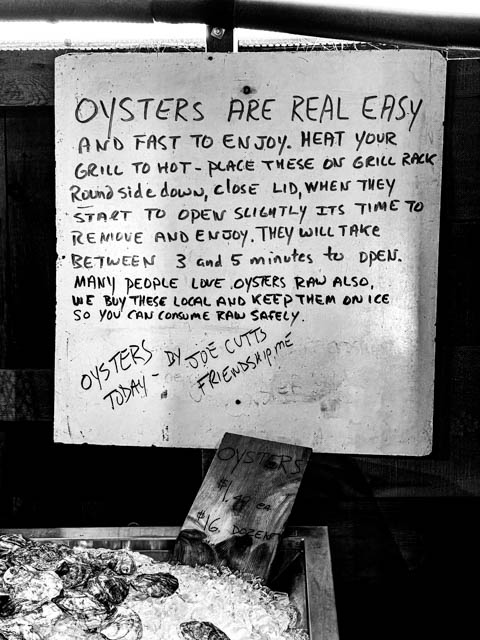 OYSTERS ARE REAL EASY
AND FAST TO ENJOY. HEAT YOUR
GRILL TO HOT - PLACE THESE ON GRILL RACK
Round side down, close LID, WHEN THEY
START TO OPEN SLIGHTLY ITS TIME TO
REMOVE AND ENJOY. THEY WILL TAKE
BETWEEN 3 and 5 minutes to OPEN.
MANY PEOPLE LOVE OYSTERS RAW ALSO,
WE BUY THESE LOCAL AND KEEP THEM ON ICE
SO YOU CAN CONSUME RAW SAFELY.
OYSTERS BY JOE CUTTS
TODAY - FRIENDSHIP, ME
OYSTERS
$1.49 ea
$16. DOZEN